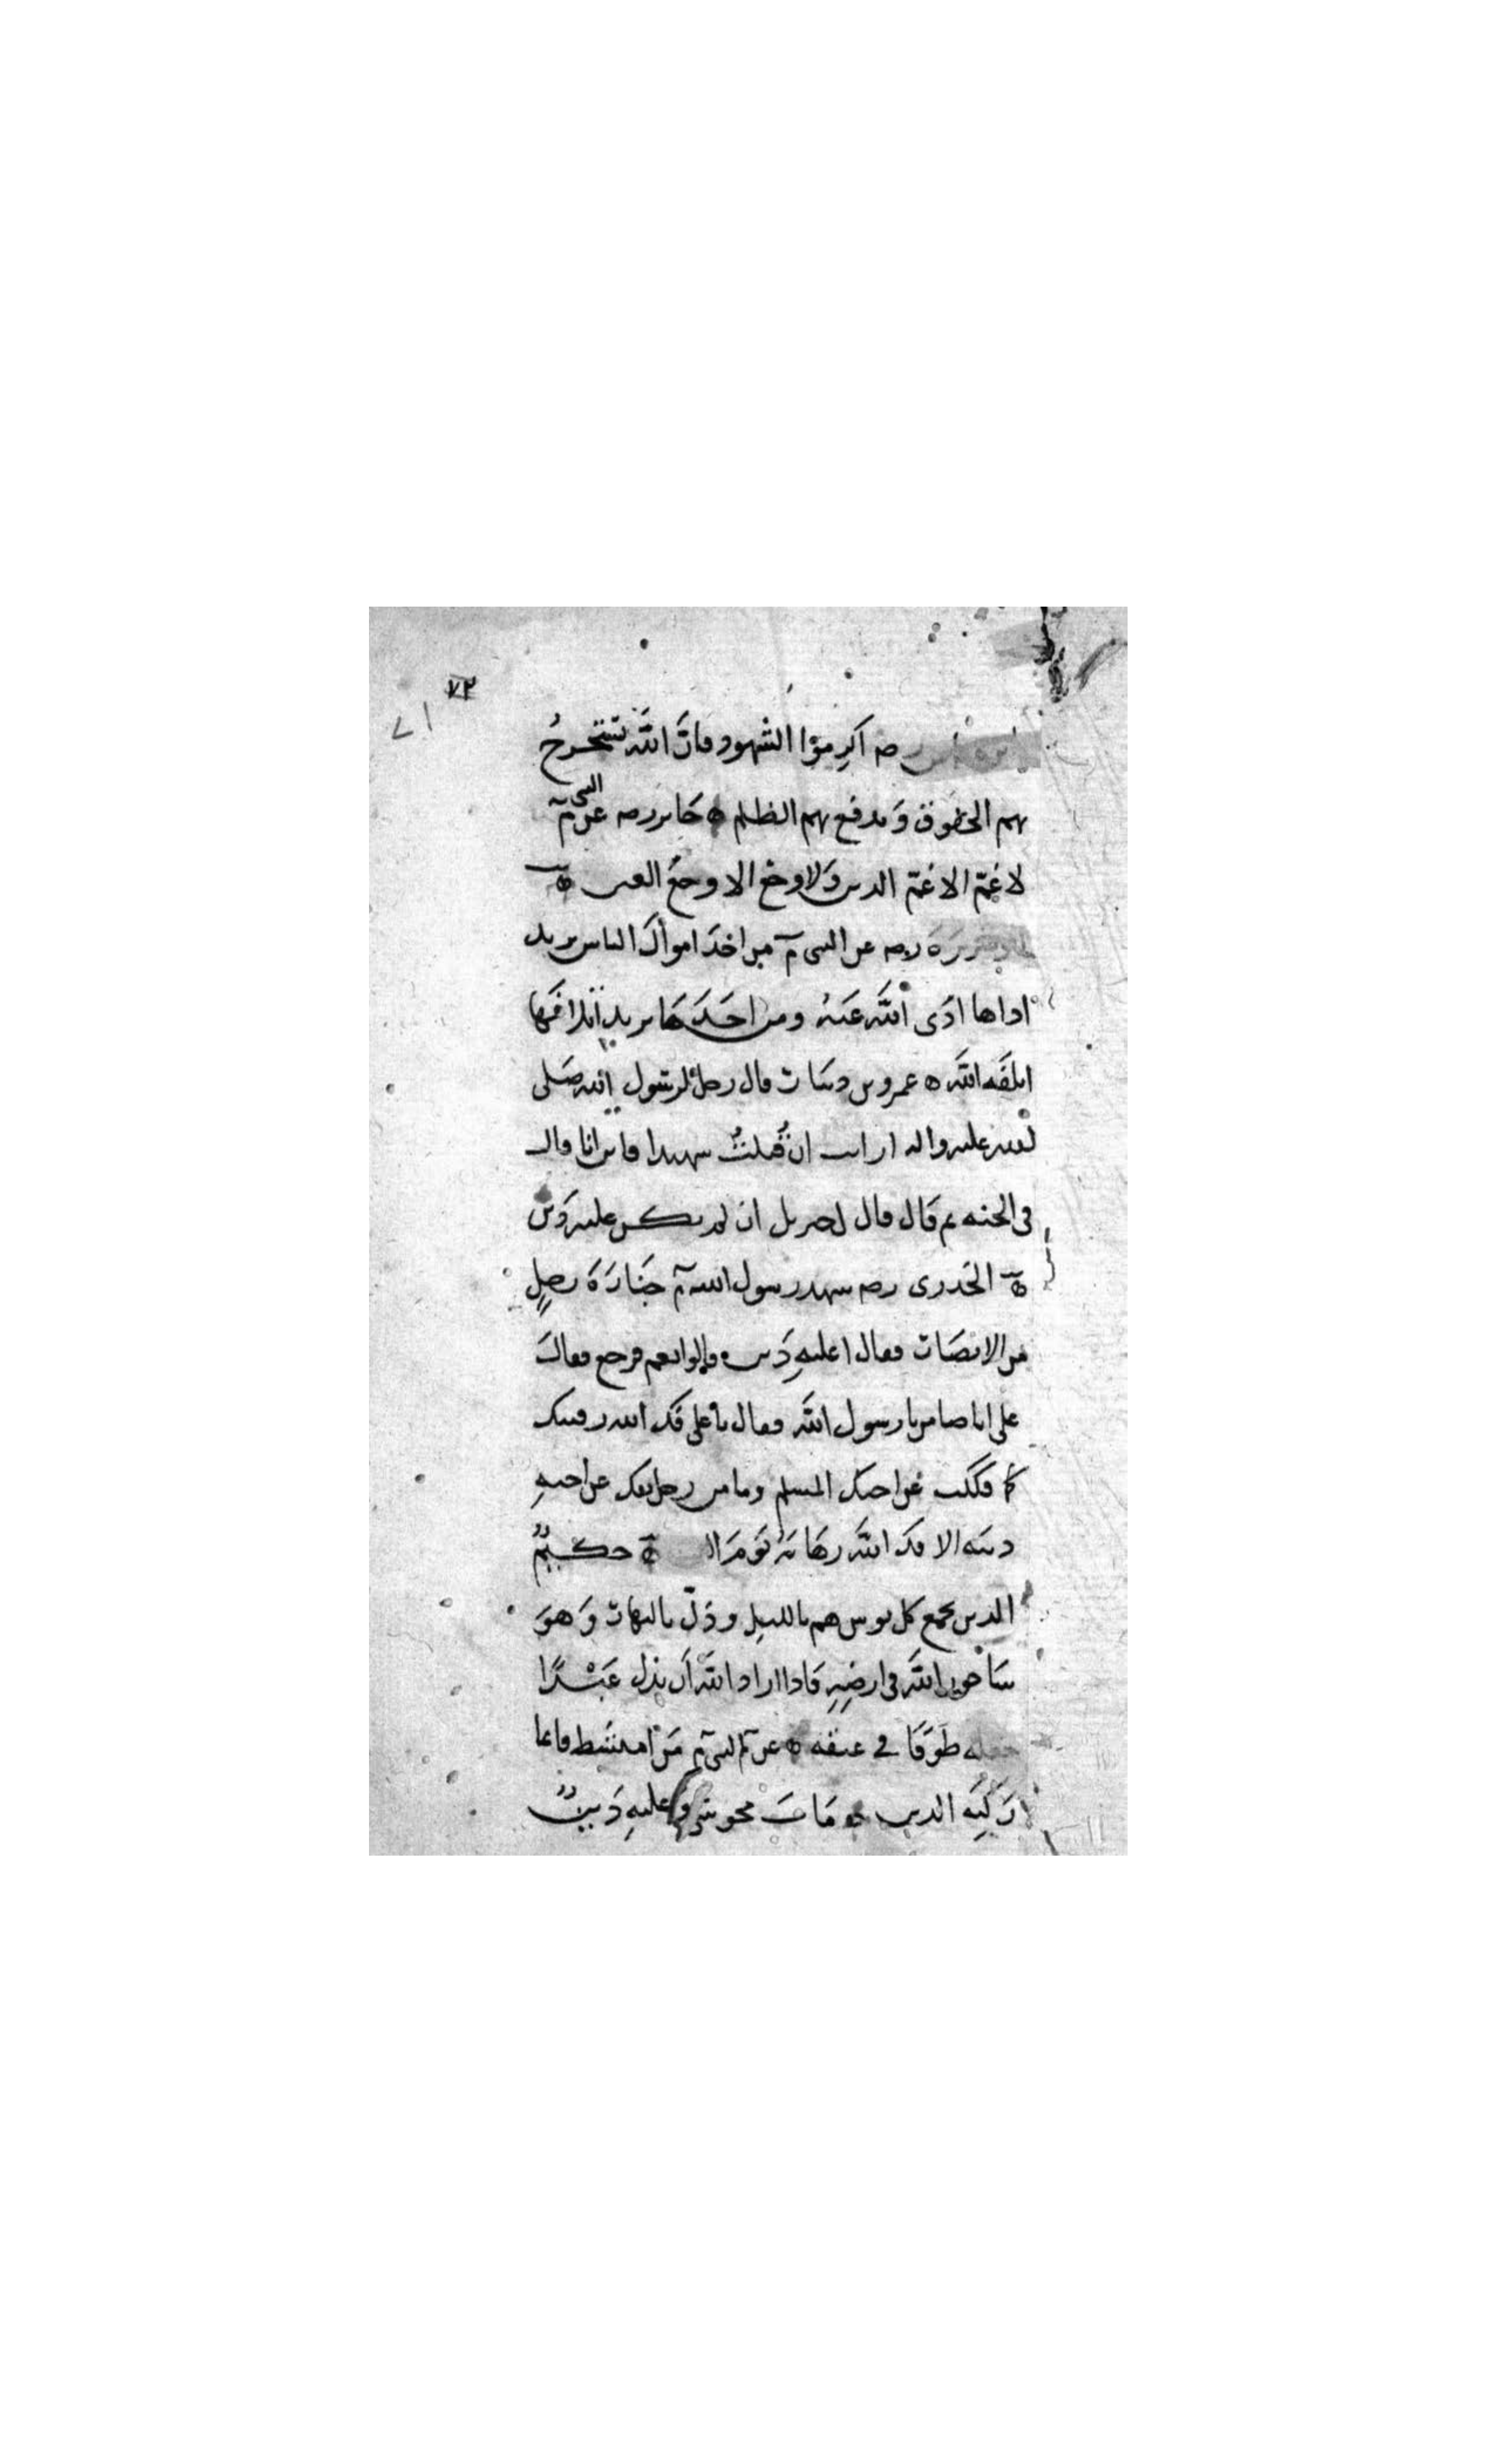 ٧٢
٧١
ابن عباس رضه اكرِموُا الشهود فانَّ اللهَ يستخرجُ
بهم الحقوق وَيدفع بهم الظلم ه جَابر رضه عن النبى م
لا غمّ الا غمّ الدين وَلا وجع الا وجعُ العين ه
هريرَة رضه عن النبى م من اخذَ اموالَ الناس يريد
اداها ادّى اللهُ عَنهُ ومن اخَذَهَا يريد اتلافَها
اتلفَه الله ه عمرو بن دينار قال رجلٌ لرسُول الله صَلى
الله عليه واله ارايت ان قُتِلتُ شهيدا فاين انا قال
فى الجنه ثم قال قال لى جبريل ان لم يكن عليه دَين
ه الخدرى رضه شهد رسول الله م جنَازَة رجلٍ
من الانصَار فقال اعليهِ دَين قالوا نعم فرجع فقالَ
على انا ضامن يا رسول الله فقال يا على فَك الله رقبتك
كما فككت عن اخيك المسلم وما من رجل يفك عن اخيهِ
دينه الا فك اللهُ رهَانهُ يَومَ ال ه حكيمٌ
الدين يجمع كل بوس هم بالليل وذلّ بالنهار وَهوَ
سَاجور اللهَ فى ارضِهِ فَاذا اراد اللهُ اَن يذل عَبْدًا
جعله طَوقَا فى عنقه ه عن النبى م مَن امتشط قايما
رَكبَه الدين ه مَاتَ مجوسى وَعليهِ دَينٌ